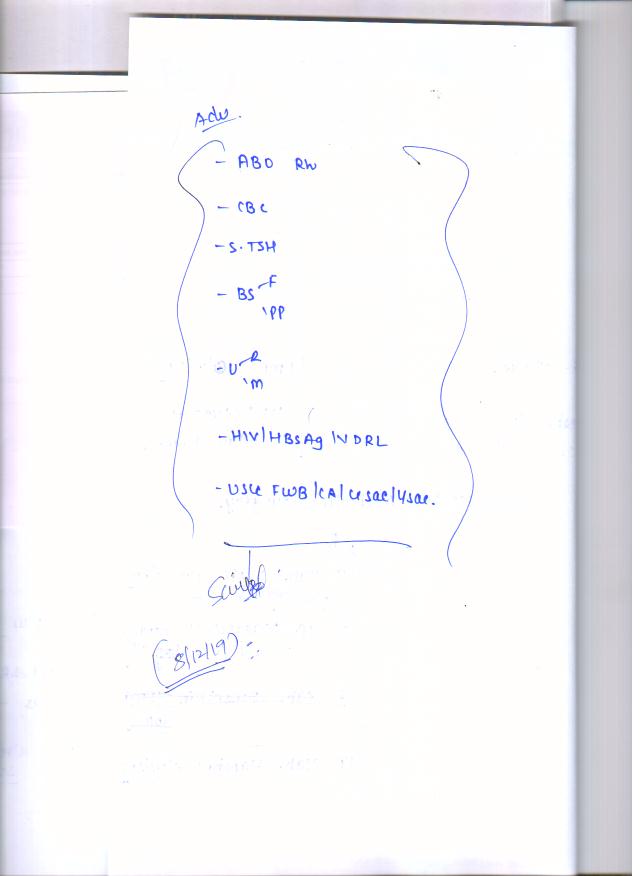 Adv.
- ABO Rh
- CBC
- S.TSH
- BS F
PP
- U R
M
- HIV/HBsAg/VDRL
- USG FWB/CA/G sac/Y sac.
(8/12/19)